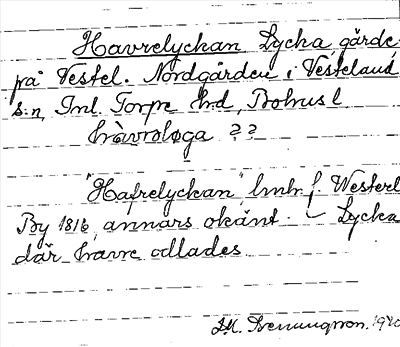 Havrelyckan Lycka, gärde
på Vestel. Nordgården i Vesteland
s:n, Inl. Torpe hrd, Bohusl
hàvroløga ??
"Hafrelyckan" lmhr f. Westerl
By 1816, annars okänt. Lycka
där havre odlades